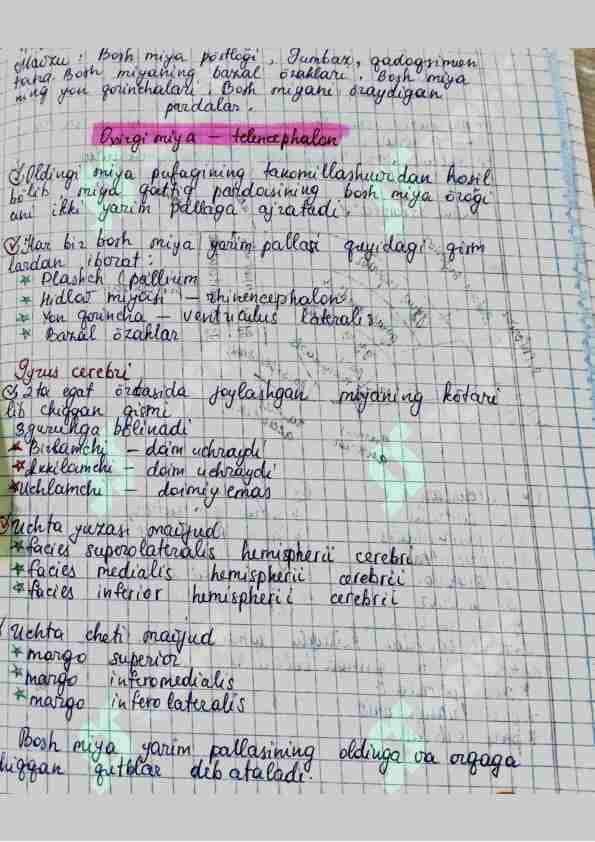 Mavzu: Bosh miya po'stlog'i, Gumbaz, qadoqsimon
tana. Bosh miyaning bazal o'zaklari. Bosh miya
ning yon qorinchalari. Bosh miyani o'raydigan
pardalar.
Oxirgi miya – telencephalon
Oldingi miya pufagining takomillashuvidan hosil
bo'lib miya qattiq pardasining bosh miya o'rog'i
uni ikki yarim pallaga ajratadi.
Har bir bosh miya yarim pallasi quyidagi qism
lardan iborat:
* Plashch (pallium
* Hidlov miyasi – rhinencephalon
* Yon qorincha – ventriculus lateralis
* Bazal o'zaklar
Gyrus cerebri
2ta egat o'rtasida joylashgan miyaning ko'tari
lib chiqqan qismi
3 guruhga bo'linadi
* Birlamchi – doim uchraydi
* Ikkilamchi – doim uchraydi
* Uchlamchi – doimiy emas
Uchta yuzasi mavjud
* facies superolateralis hemispherii cerebri
* facies medialis hemispherii cerebrii
* facies inferior hemispherii cerebrii
Uchta cheti mavjud
* margo superior
* margo inferomedialis
* margo inferolateralis
Bosh miya yarim pallasining oldinga va orqaga
chiqqan qutblar deb ataladi.